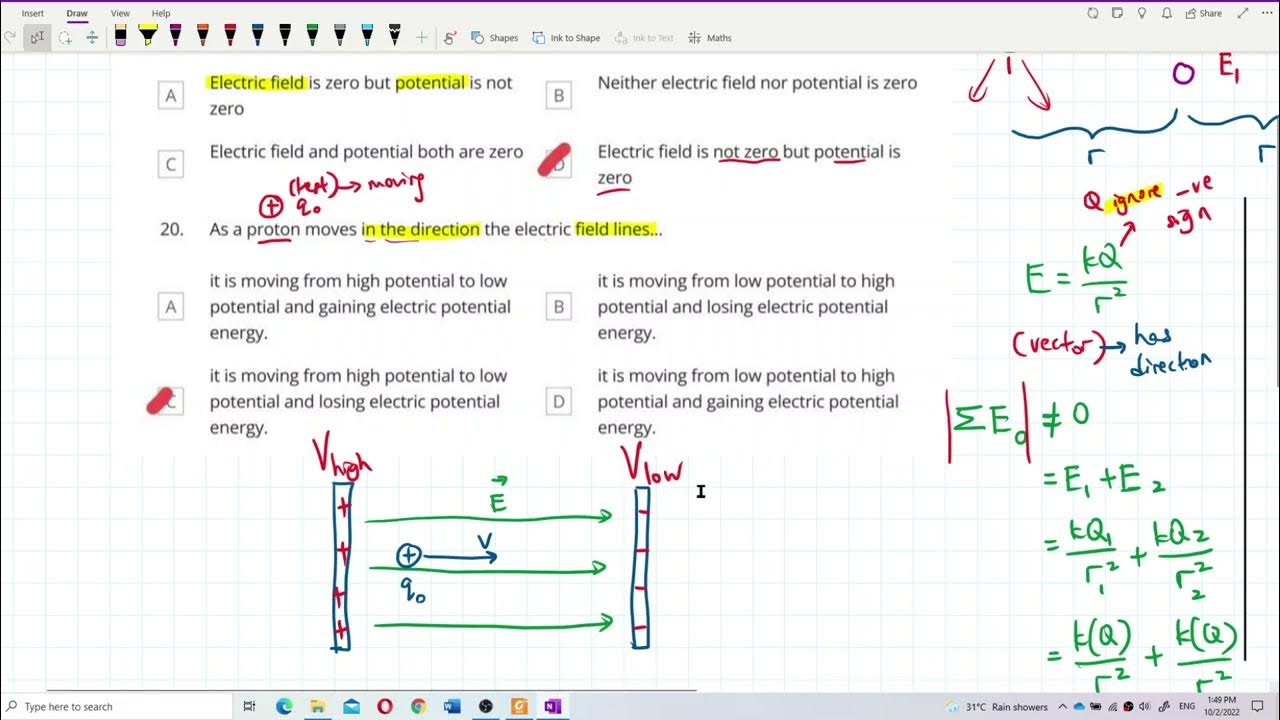 Insert Draw View Help
Share
Shapes Ink to Shape Ink to Text Maths
A Electric field is zero but potential is not
zero
B Neither electric field nor potential is zero
C Electric field and potential both are zero
D Electric field is not zero but potential is
zero
(test) → moving
+ q₀
20. As a proton moves in the direction the electric field lines...
A it is moving from high potential to low
potential and gaining electric potential
energy.
B it is moving from low potential to high
potential and losing electric potential
energy.
C it is moving from high potential to low
potential and losing electric potential
energy.
D it is moving from low potential to high
potential and gaining electric potential
energy.
V high
V low
E
V
+
q₀
E₁
r r
Q ignore -ve
sign
E = kQ/r²
(vector) → has
direction
|ΣE₀| ≠ 0
= E₁ + E₂
= kQ₁/r₁² + kQ₂/r₂²
= k(Q)/r² + k(Q)/r²
Type here to search
31°C Rain showers
ENG
1:49 PM
10/2/2022